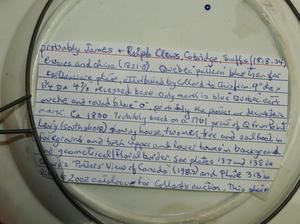 probably James + Ralph Clews, Cobridge, Staffs (1818-34)
Quebec pattern blue transfer
earthenware plate, attributed by Collard to this firm. 9" dia
recessed base. Only mark is blue Quebec cart-
ouche and blue "o", probably the potter or decorators
mark. Ca 1830 Probably based on a 1761 print of Q from Point
Levy (south shore) showing house, two men, tree and sailboat
foreground and both upper and lower towns in background
and geometrical/floral border. See plates 137 and 138 in
"Potters' View of Canada" (1983) and Plate 313 in
2002 catalogue for Collard's auction. This plate